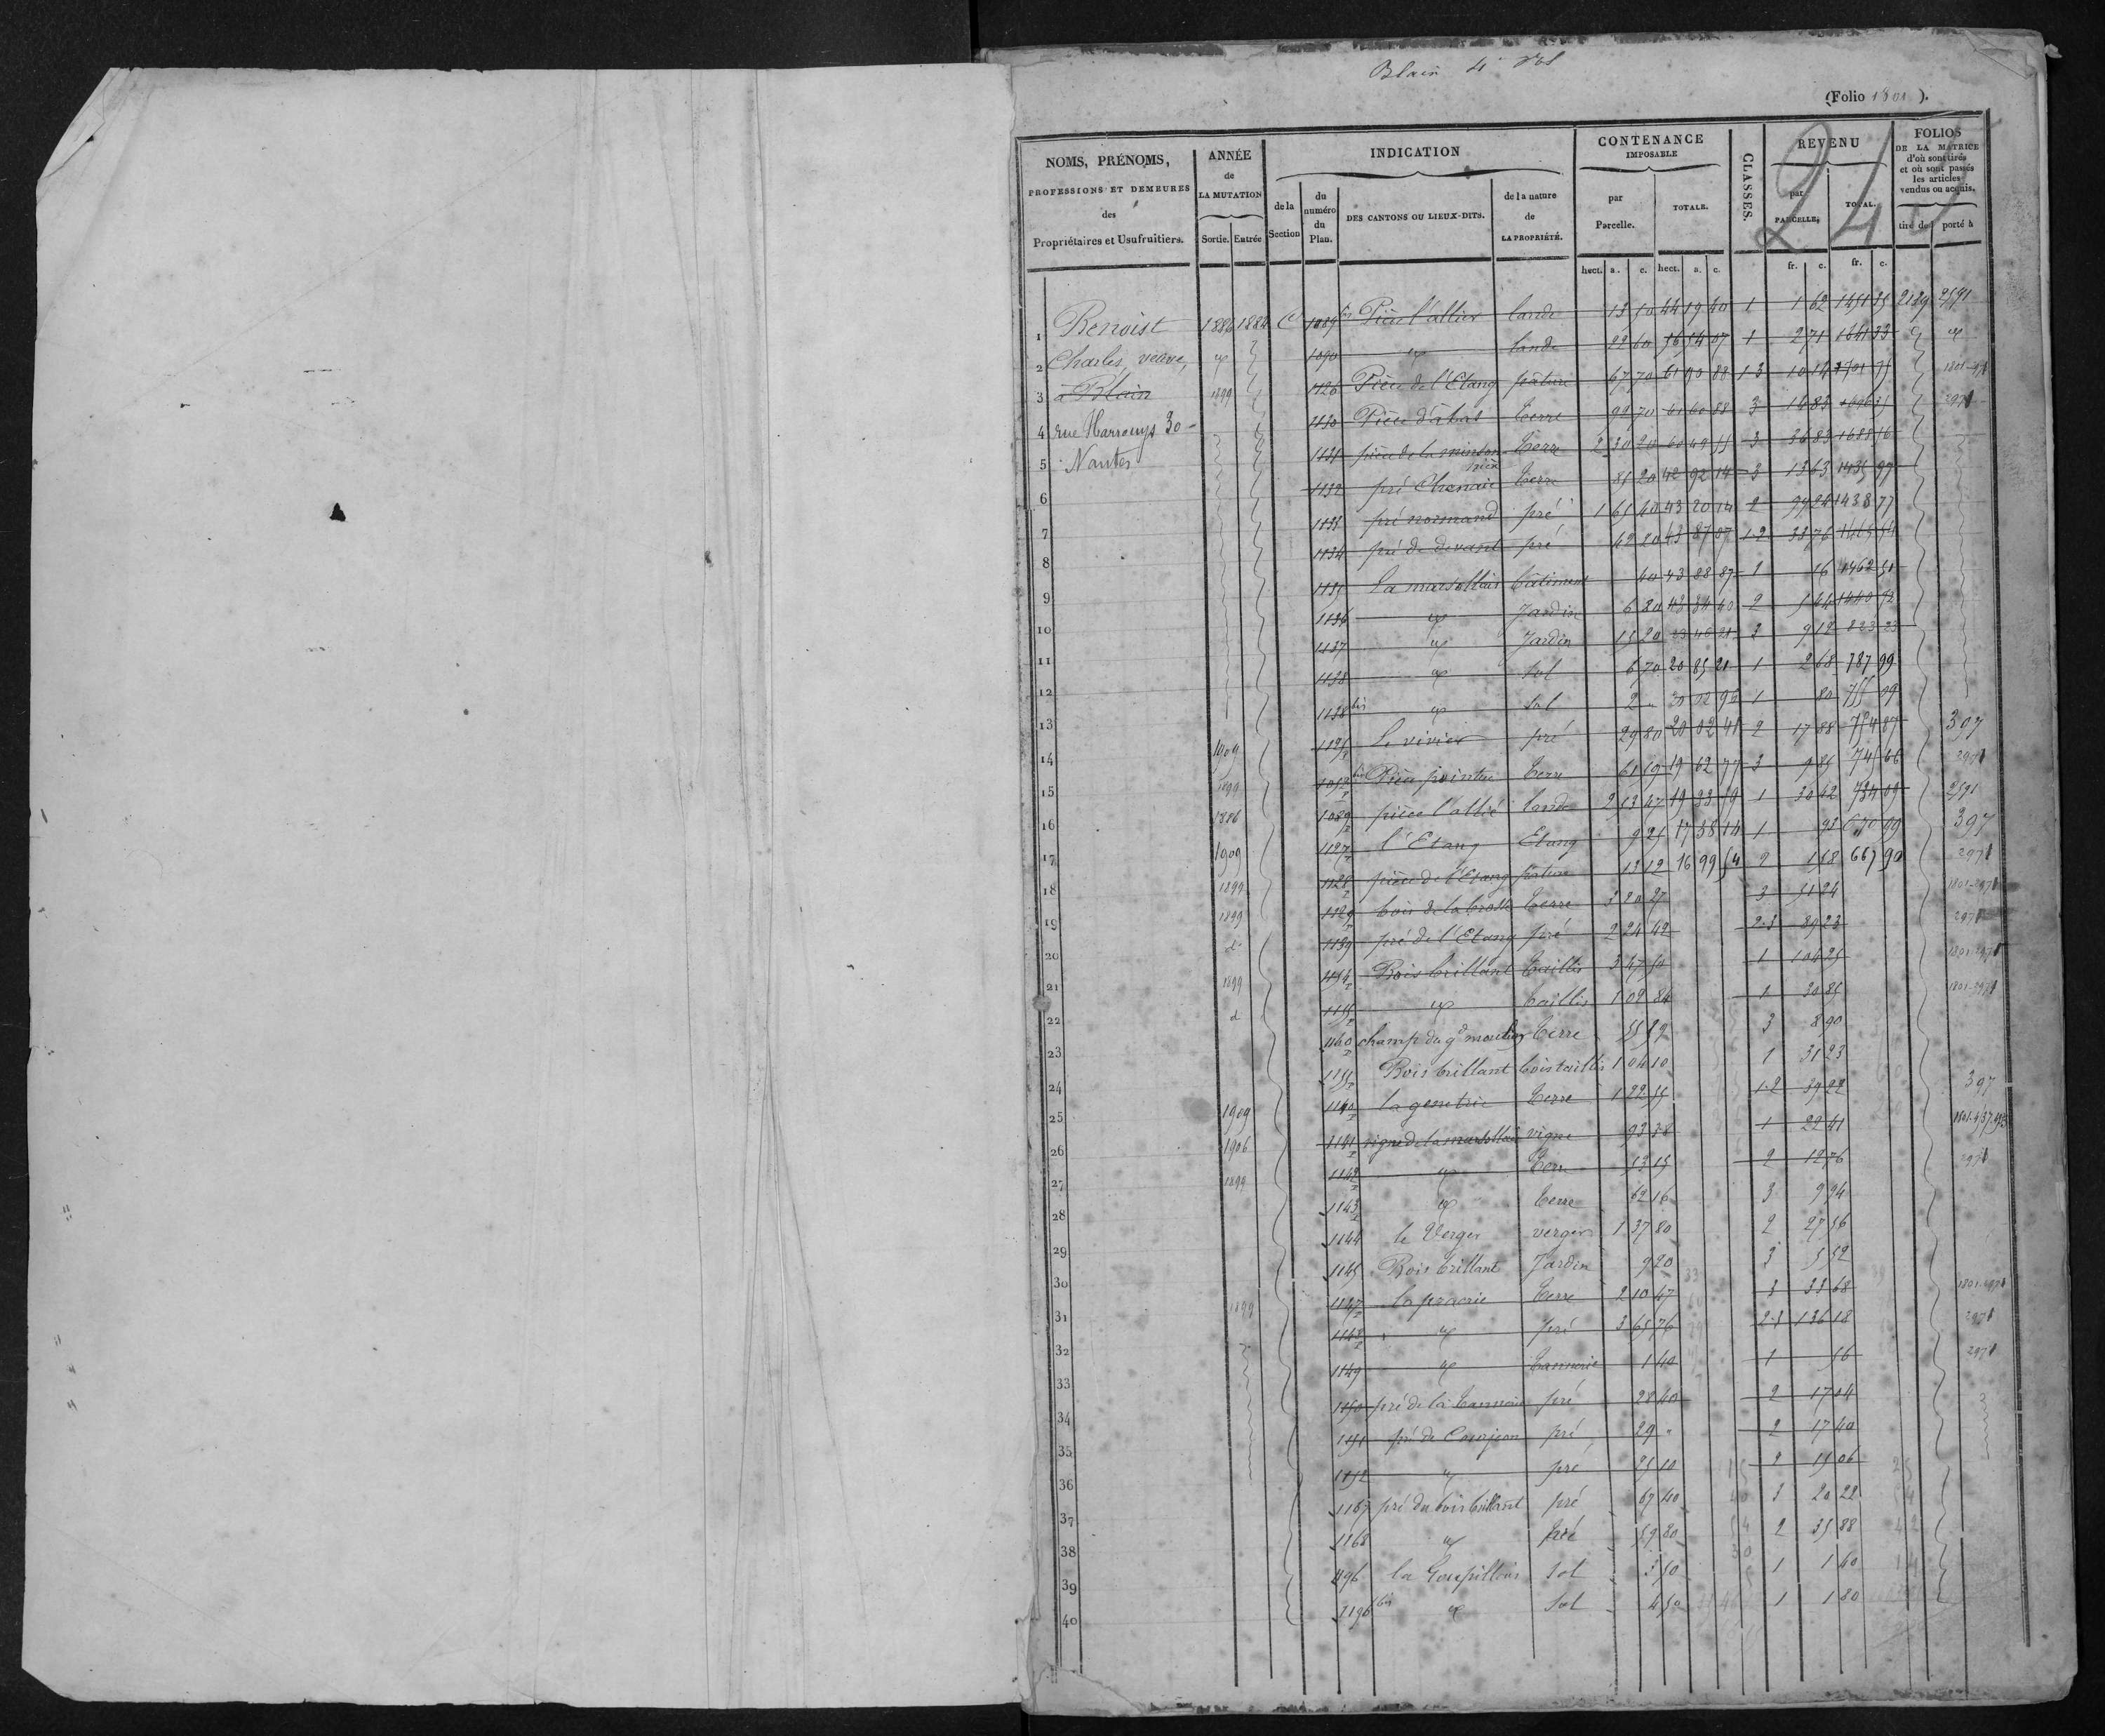 Blain 4e Vol
(Folio 1801 ).
244
NOMS, PRÉNOMS,
PROFESSIONS ET DEMEURES
des
Propriétaires et Usufruitiers.
ANNÉE
de
LA MUTATION
Sortie. Entrée
INDICATION
de la
Section
du
numéro
du
Plan.
DES CANTONS OU LIEUX-DITS.
de la nature
de
LA PROPRIÉTÉ.
CONTENANCE
IMPOSABLE
par
Parcelle.
TOTALE.
CLASSES.
REVENU
par
PARCELLE.
TOTAL.
FOLIOS
DE LA MATRICE
d'où sont tirés
et où sont passés
les articles
vendus ou acquis.
tiré de porté à
hect. a. c. hect. a. c. fr. c. fr. c.
1 Benoist 1886 1884 C 1089 bis Pièce l'allier lande 13 10 44 19 40 1 1 62 1451 35 2189 2591
2 Charles, veuve, 1090 lande 22 60 1 2 71 1641 33
3 à Blain 1899 1126 Pièce de l'Etang pâture 67 70 61 90 88 1 3 10 14
4 rue Harrouys 30 1130 Terre 92 70 61 60 88 3 14 83 2971
5 Nantes 1131 Terre 2 30 20 60 49 3 36 83 1688 16
6 1132 pré Chenaie Terre 85 20 42 92 14 3 13 63 1435 97
7 1133 pré normand pré 1 65 40 43 20 14 2 99 24 1438 77
8 1134 pré de devant pré 42 20 43 87 07 1-2 33 76
9 1135 La marsollais bâtiment 40 43 88 87 1 16 1462 51
10 1136 Jardin 6 80 2 5 44 1440 52
11 1137 Jardin 15 20 3 9 12 823 23
12 1138 Sol 6 70 20 85 21 1 2 68 787 99
13 1138 bis Sol 2 " 1 80 755 09
14 1909 1125 le vivier pré 29 80 20 02 41 2 17 88 754 87 397
15 1899 bis Pièce pointue Terre 61 59 19 62 77 3 9 85 745 66 2971
16 1886 1089 pièce l'allié lande 2 13 47 19 33 59 1 734 09 2591
17 1909 1127 l'Etang Etang 9 25 17 38 14 1 93 670 99 397
18 1899 1128 pièce de l'Etang pâture 13 12 16 99 54 2 1 58 667 90 2971
19 1899 1129 bois de la brosse Terre 3 20 27 3 51 24 1801-2971
20 d° 1139 pré de l'Etang pré 2 24 42 2-3 89 23 2971
21 1899 1154 Bois brillant taillis 3 47 50 1 104 25 1801-2971
22 d° 1155 taillis 1 02 84 1 30 85 1801-2971
23 1160 champ du gd moulin Terre 55 59 3 8 90
24 1155 Bois brillant bois taillis 1 04 10 1 31 23
25 1909 1140 la genetrie Terre 1 22 55 1-2 39 22 397
26 1906 1141 vigne de la marsollais vigne 93 38 1 22 41
27 1899 1142 Terre 13 15 2 12 76 2971
28 1143 Terre 62 16 3 9 94
29 1144 le Verger verger 1 37 80 2 27 56
30 1145 Bois brillant Jardin 9 20 3 5 52
31 1899 1147 la prairie Terre 2 10 47 3 33 68 1801-2971
32 1148 pré 3 65 76 2-3 136 18 2971
33 1149 tannerie 1 40 1 56 2971
34 1150 pré de la tannerie pré 28 40 2 17 04
35 1151 pré de Courjeon pré 29 " 2 17 40
36 1152 pré 25 10 2 15 06
37 1167 pré du bois brillant pré 67 40 3 20 22
38 1168 pré 59 80 2 35 88
39 1196 la Goupillais Sol 3 50 1 1 40
40 1196 bis Sol 4 50 1 1 80